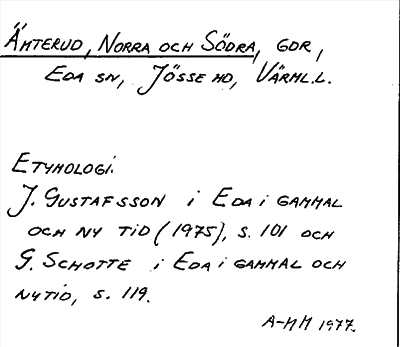 Ämterud, Norra och Södra, gdr,
Eda sn, Jösse hd, Värml.l.
Etymologi.
J. Gustafsson i Eda i gammal
och ny tid (1975), s. 101 och
G. Schotte i Eda i gammal och
ny tid, s. 119.
A-MM 1977.